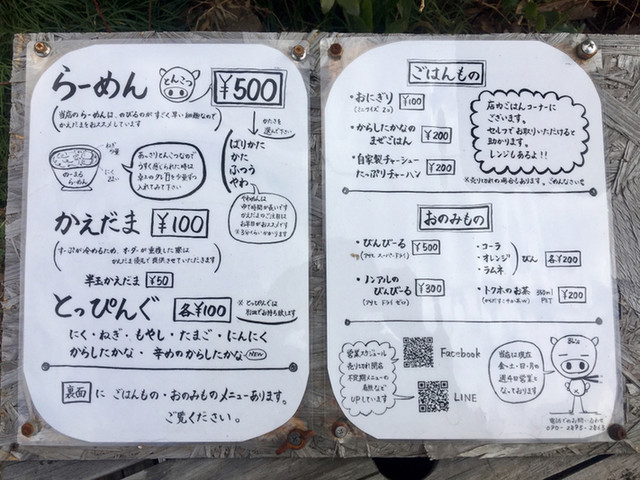 らーめん
とんこつ
¥500
(当店のらーめんは、のびるのがすごく早い細麺なので
かえだまをおススメしています)
かたさを
選んで下さい
ばりかた
かた
ふつう
やわ
ねぎ少量
にく2コ
のーまる
らーめん
あっさりとんこつなので
うすく感じられた時は
卓上のタレを少量ずつ
入れてみて下さい
やわめんは
ゆで時間が長いです
かえだまのご注文は
お早目がおススメです
※3分くらいかかります
かえだま ¥100
(す-ぷが冷めるため、オーダーが重複した際は
かえだま優先で提供させていただきます)
半玉かえだま ¥50
とっぴんぐ 各¥100
※とっぴんぐは
別皿でお持ち致します
にく・ねぎ・もやし・たまご・にんにく
からしたかな・辛めのからしたかな NEW
裏面に ごはんもの・おのみものメニューあります。
ご覧ください。
ごはんもの
・おにぎり ¥100
・からしたかなの
まぜごはん ¥200
・自家製チャーシュー
たっぷりチャーハン ¥200
店内ごはんコーナーに
ございます。
セルフでお取りいただけると
助かります。
レンジもあるよ!!
※売り切れの場合もあります。ごめんなさい
おのみもの
・びんびーる ¥500
(アサヒ スーパードライ)
・ノンアルの
びんびーる ¥300
(アサヒ ドライゼロ)
・コーラ
・オレンジ
・ラムネ
びん 各¥200
・トクホのお茶 350ml
PET ¥200
営業スケジュール
売り切れ閉店
不定期メニューの
告知などで
UPしています
Facebook
LINE
当店は現在
金・土・日・月の
週4日営業と
なっております
電話でのお問い合わせ